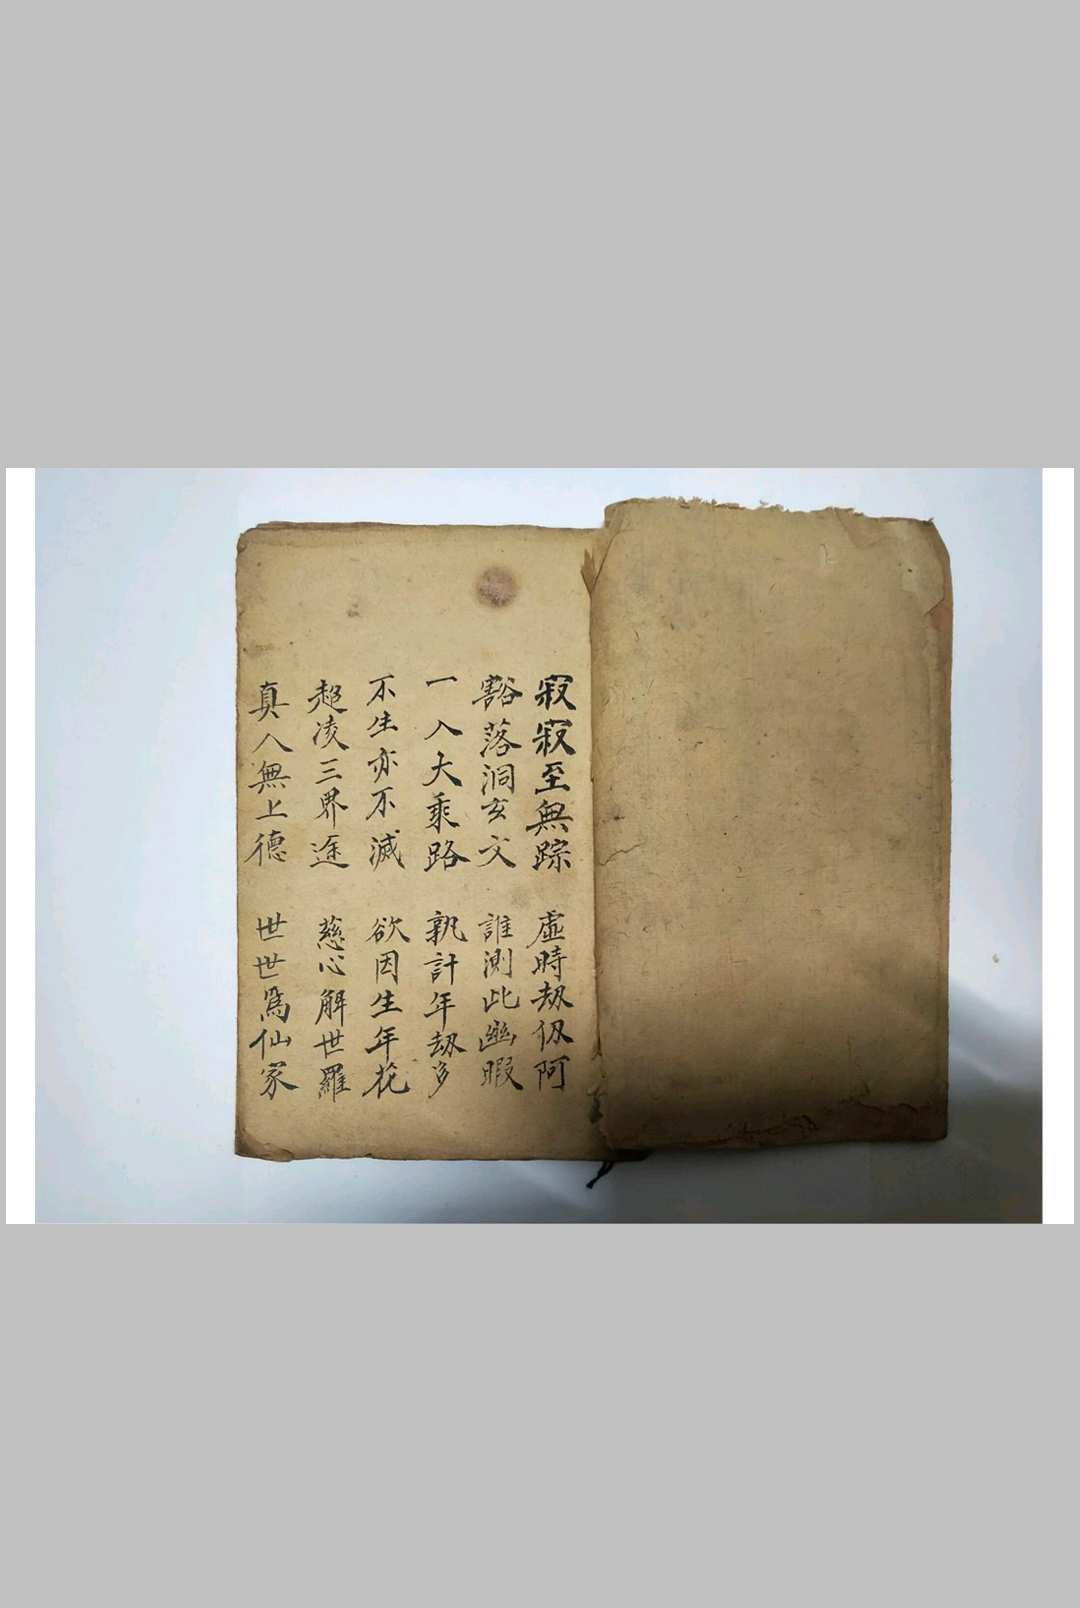 寂寂至無踪　虛時劫仭阿
豁落洞玄文　誰測此幽暇
一入大乘路　孰計年劫多
不生亦不滅　欲因生年花
超凌三界途　慈心解世羅
真人無上德　世世爲仙家